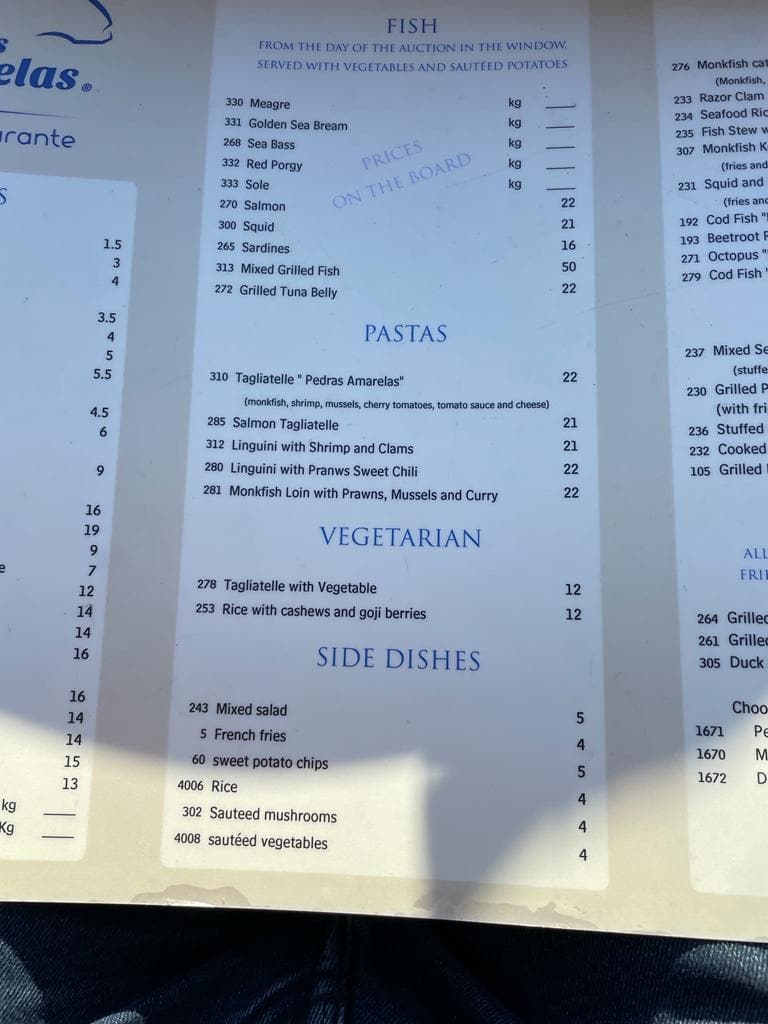 s
elas®
urante
S
1.5
3
4
3.5
4
5
5.5
4.5
6
9
16
19
9
e 7
12
14
14
16
16
14
14
15
13
kg ____
Kg ____
FISH
FROM THE DAY OF THE AUCTION IN THE WINDOW,
SERVED WITH VEGETABLES AND SAUTÉED POTATOES
330 Meagre kg ____
331 Golden Sea Bream kg ____
268 Sea Bass kg ____
332 Red Porgy kg ____
333 Sole kg ____
PRICES
ON THE BOARD
270 Salmon 22
300 Squid 21
265 Sardines 16
313 Mixed Grilled Fish 50
272 Grilled Tuna Belly 22
PASTAS
310 Tagliatelle " Pedras Amarelas" 22
(monkfish, shrimp, mussels, cherry tomatoes, tomato sauce and cheese)
285 Salmon Tagliatelle 21
312 Linguini with Shrimp and Clams 21
280 Linguini with Pranws Sweet Chili 22
281 Monkfish Loin with Prawns, Mussels and Curry 22
VEGETARIAN
278 Tagliatelle with Vegetable 12
253 Rice with cashews and goji berries 12
SIDE DISHES
243 Mixed salad 5
5 French fries 4
60 sweet potato chips 5
4006 Rice 4
302 Sauteed mushrooms 4
4008 sautéed vegetables 4
276 Monkfish cat
(Monkfish,
233 Razor Clam
234 Seafood Ric
235 Fish Stew w
307 Monkfish K
(fries and
231 Squid and
(fries and
192 Cod Fish "
193 Beetroot
271 Octopus "
279 Cod Fish "
237 Mixed Se
(stuffe
230 Grilled P
(with fri
236 Stuffed
232 Cooked
105 Grilled
ALL
FRI
264 Grilled
261 Grille
305 Duck
Choo
1671 Pe
1670 M
1672 D